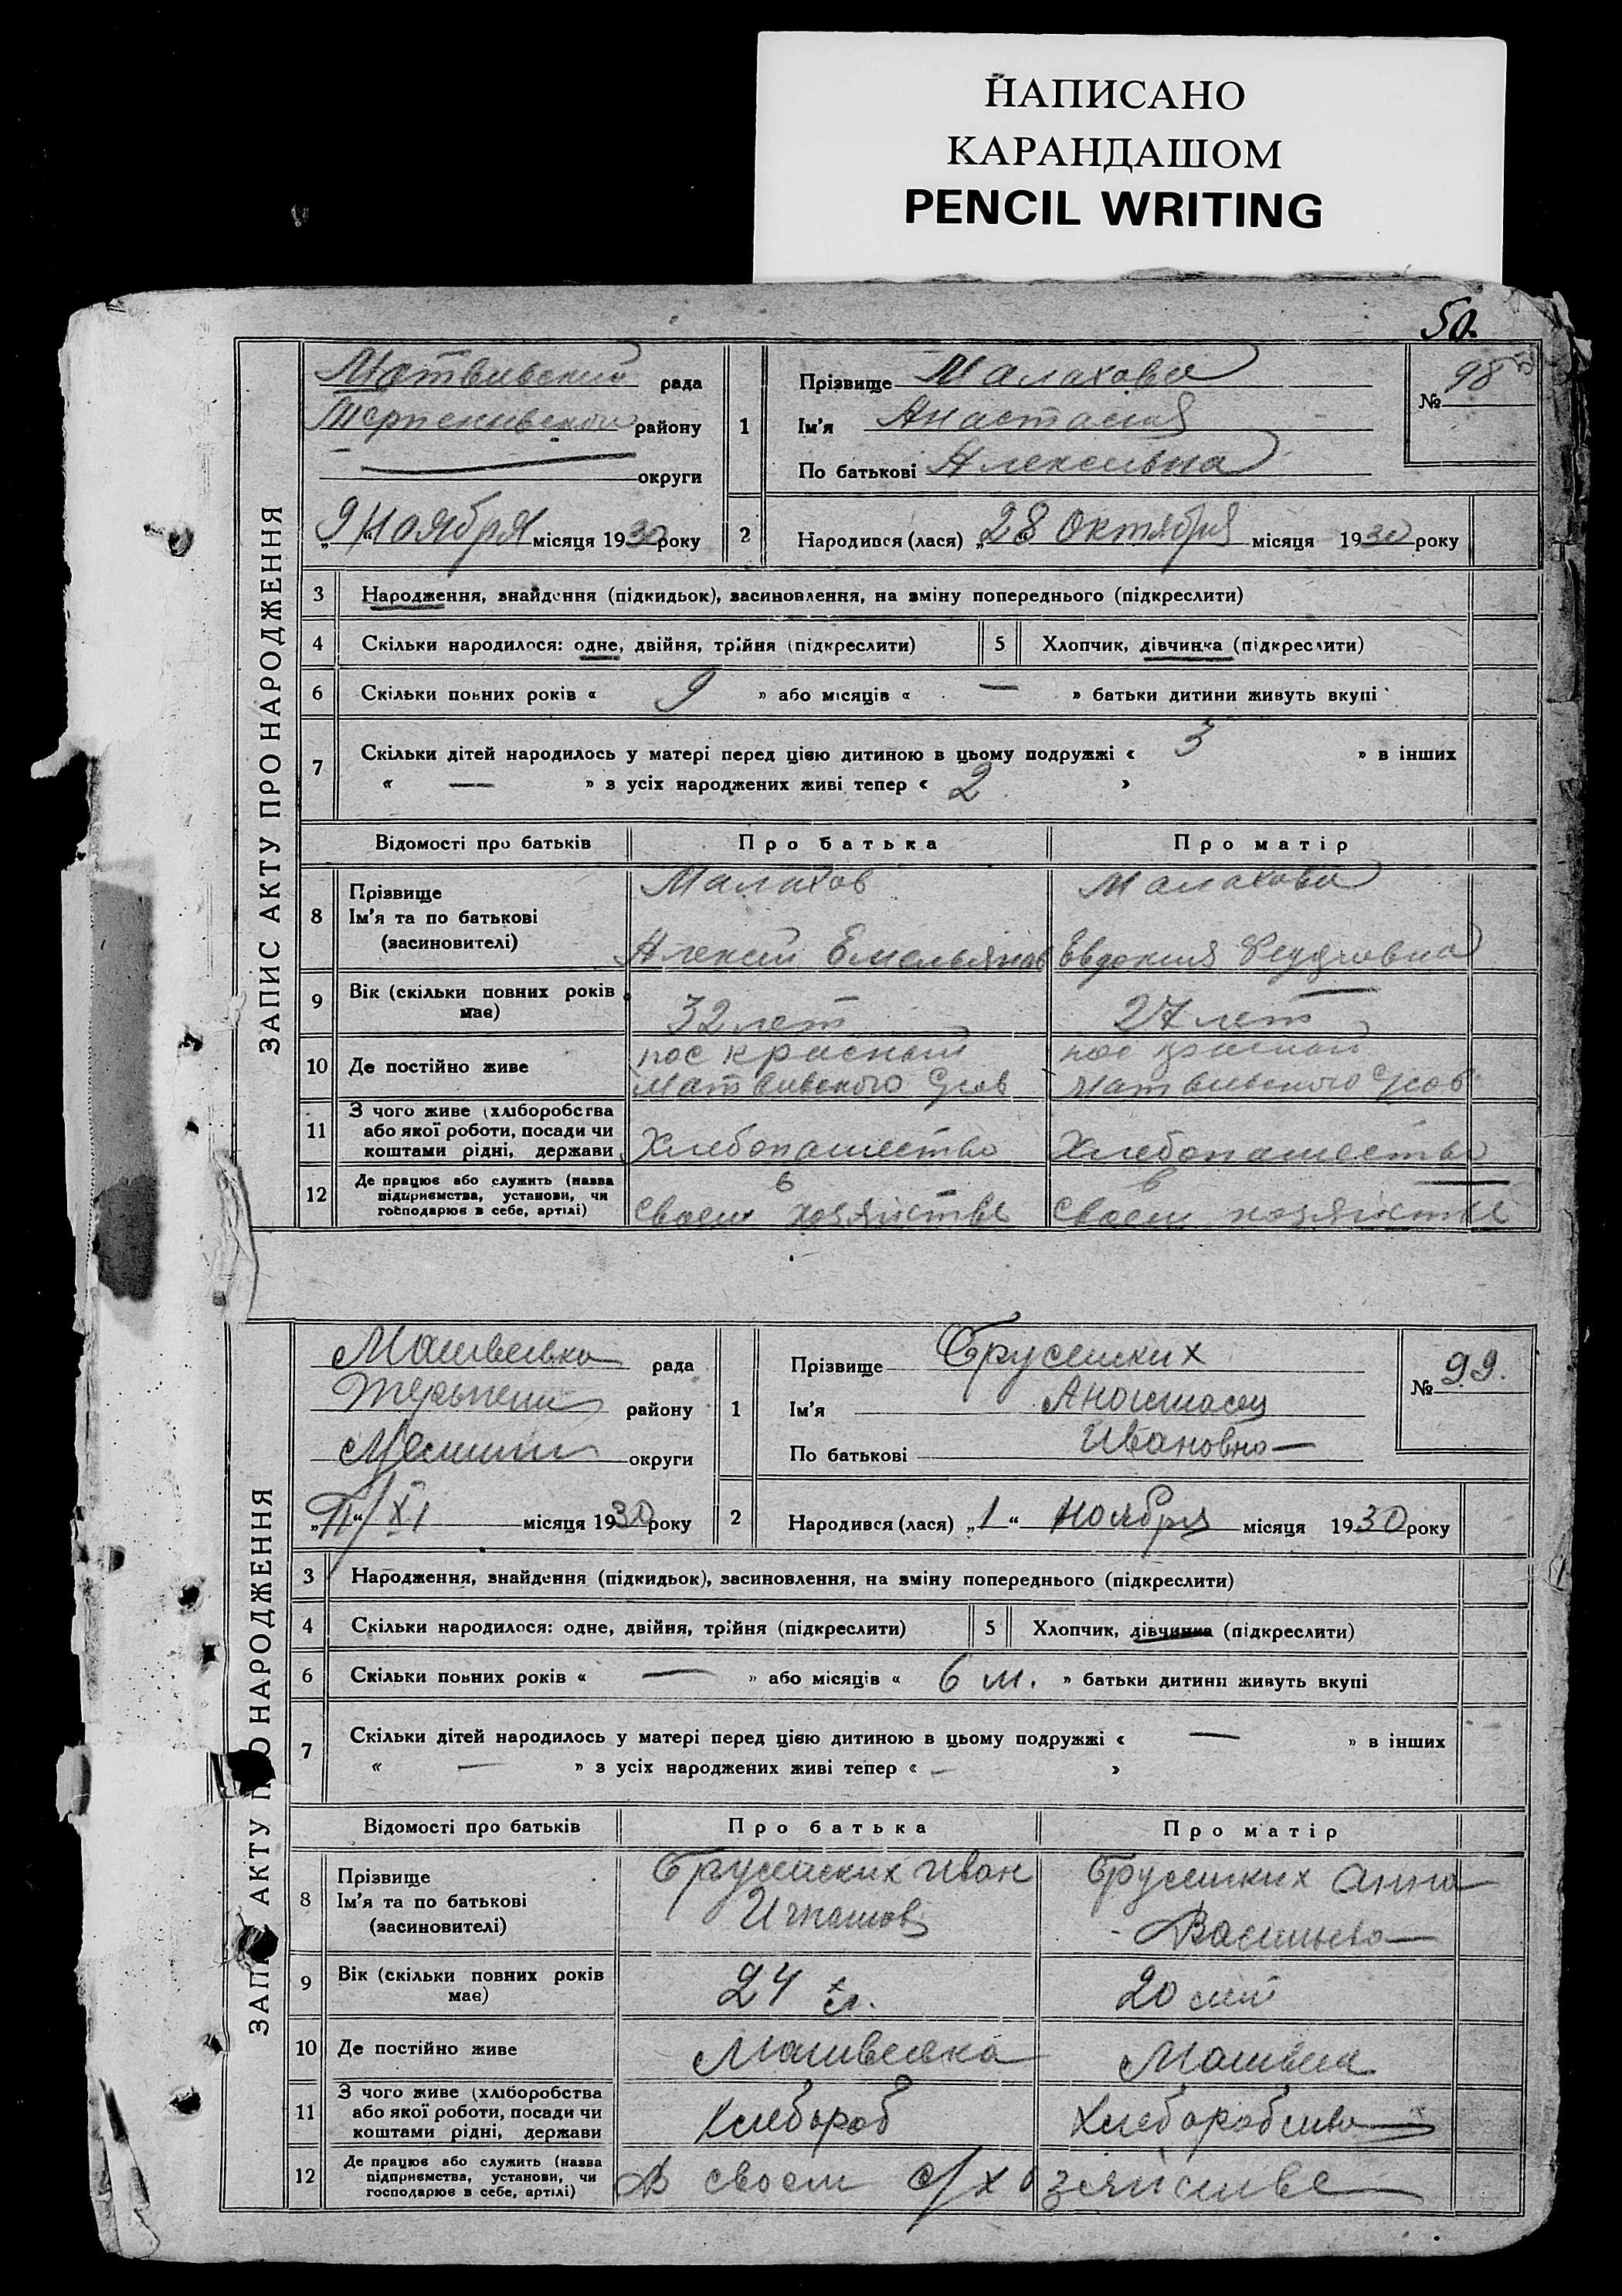 НАПИСАНО
КАРАНДАШОМ
PENCIL WRITING
50.
ЗАПИС АКТУ ПРО НАРОДЖЕННЯ
Матвивский рада
района
округи
„9“ Ноября місяця 1930 року
1
Прізвище Малахова
Ім'я Анастасия
По батькові Алексивна
№ 98
2 Народився (лася) „28 Октября місяця 1930 року
3 Народження, знайдення (підкидьок), засиновлення, на зміну попереднього (підкреслити)
4 Скільки народилося: одне, двійня, трійня (підкреслити) 5 Хлопчик, дівчинка (підкреслити)
6 Скільки повних років « 9 » або місяців « — » батьки дитини живуть вкупі
7 Скільки дітей народилось у матері перед цією дитиною в цьому подружжі « 3 » в інших
« — » з усіх народжених живі тепер « 2 »
Відомості про батьків Про батька Про матір
8 Прізвище Малахов Малахова
Ім'я та по батькові
(засиновителі) Алексей Емельянов Евдокия
9 Вік (скільки повних років має) 32 лет 27 лет
10 Де постійно живе пос красный пос красный
Матвивского Матвивского
11 З чого живе (хліборобства або якої роботи, посади чи коштами рідні, держави Хлебопашество Хлебопашество
12 Де працює або служить (назва підприємства, установи, чи господарює в себе, артілі) в своем хозяистве в своем хозяистве
ЗАПИС АКТУ ПРО НАРОДЖЕННЯ
рада
району
округи
„11“/XI місяця 1930 року
1
Прізвище
Ім'я
По батькові Ивановно—
№ 99.
2 Народився (лася) „1“ Ноября місяця 1930 року
3 Народження, знайдення (підкидьок), засиновлення, на зміну попереднього (підкреслити)
4 Скільки народилося: одне, двійня, трійня (підкреслити) 5 Хлопчик, дівчинка (підкреслити)
6 Скільки повних років « — » або місяців « 6 м. » батьки дитини живуть вкупі
7 Скільки дітей народилось у матері перед цією дитиною в цьому подружжі « — » в інших
« — » з усіх народжених живі тепер « — »
Відомості про батьків Про батька Про матір
8 Прізвище Иван Анна
Ім'я та по батькові
(засиновителі)
9 Вік (скільки повних років має) 24 20 лет
10 Де постійно живе Матвеевка
11 З чого живе (хліборобства або якої роботи, посади чи коштами рідні, держави Хлебороб Хлеборобство
12 Де працює або служить (назва підприємства, установи, чи господарює в себе, артілі) В своем с/хозяистве